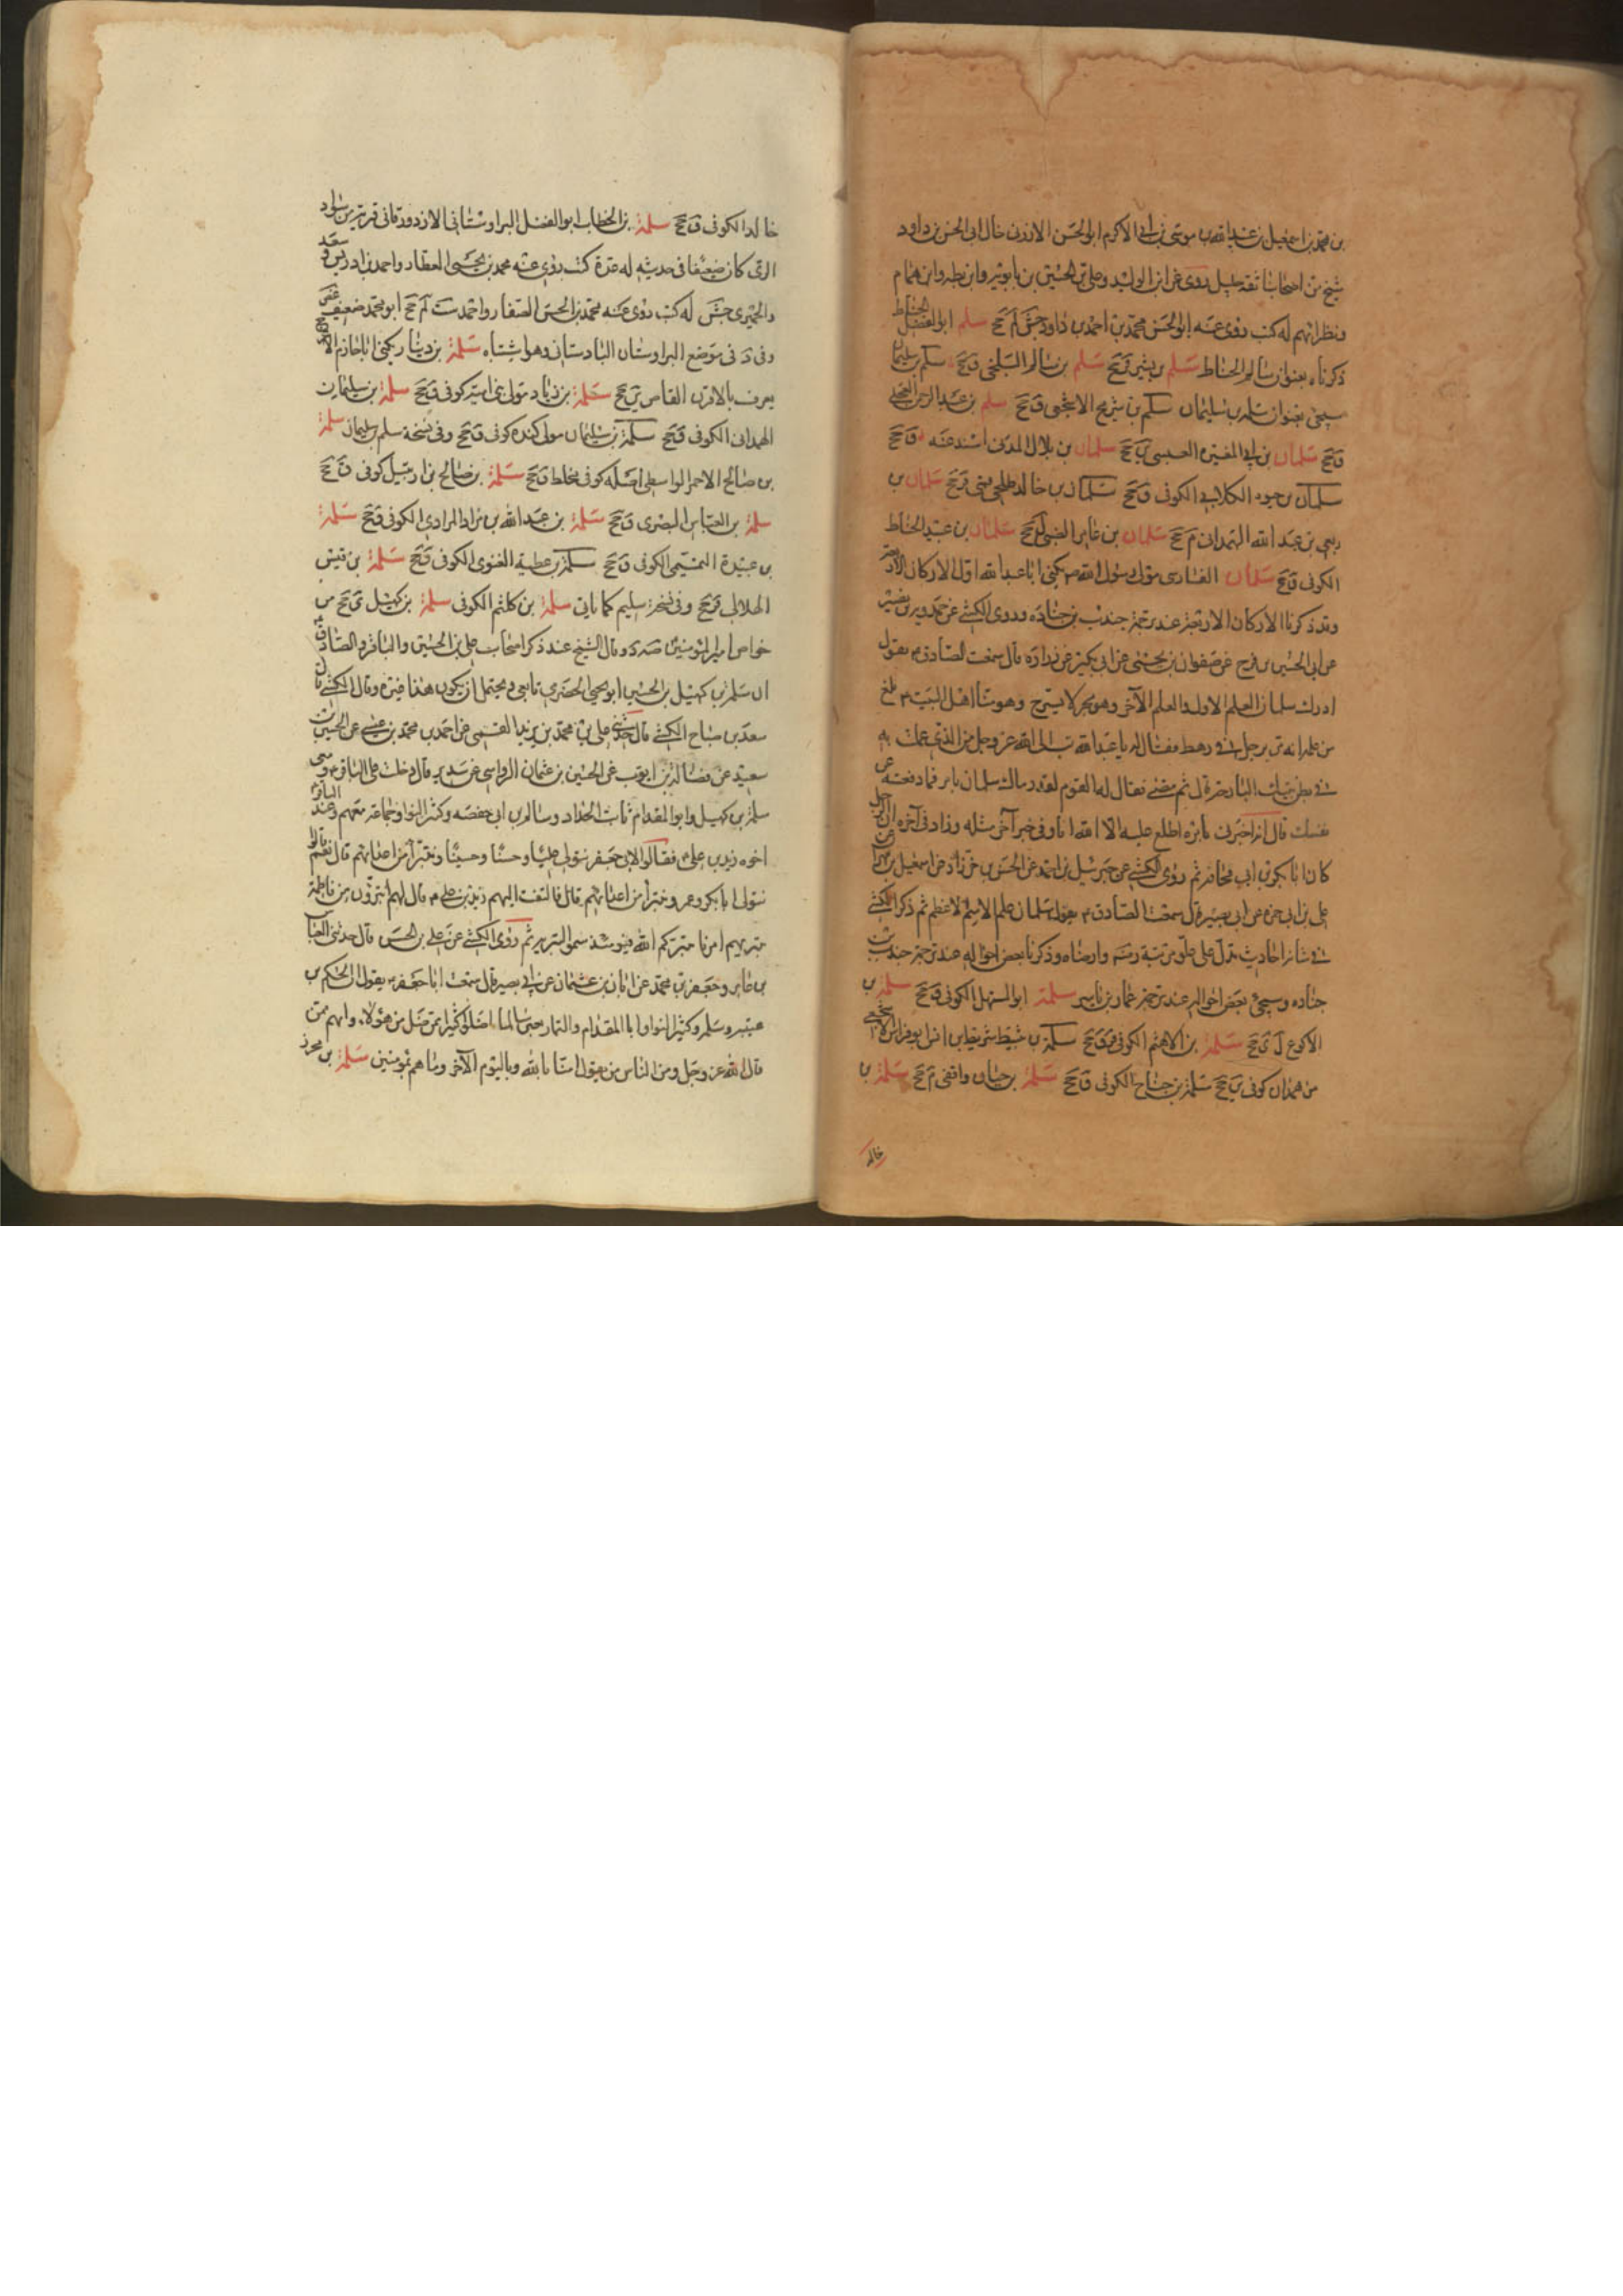 بن محمد بن اسمعيل بن عبد الله بن موسى بن ابي الاكرم ابو الحسن الارزنى خال ابى الحسن بن داود
شيخ من اصحابنا ثقة جليل روى عن ابن الوليد وعلى بن الحسين بن بابويه وابن بطه وابن همام
ونظرائهم له كتب روى عنه ابو الحسن محمد بن احمد بن داود جش لم جخ سلم ابو الفضل الحناط
ذكرناه بعنوان سالم الحناط سلم بن بشير ق جخ سلم بن سالم البلخى ق جخ سلم بن سليمان
سيجئ بعنوان سلمة بن سليمان سلم بن شريح الاشجعى ق جخ سلم بن عبد الرحمن العجلى
ق جخ سلمان بن ابي المغيره العبسى ين جخ سلمان بن بلال المدنى اسند عنه ق جخ
سلمان بن الكلابى الكوفى ق جخ سلمان بن خالد طلحى قمى ق جخ سلمان بن
ربعى بن عبد الله الهمدانى م جخ سلمان بن عامر الضبى ل جخ سلمان بن عبد الحناط
الكوفى ق جخ سلمان الفارسى مولى رسول الله ص يكنى ابا عبد الله اول الاركان الاربعة
وقد ذكرنا الاركان الاربعة عند ترجمة جندب بن جناده وروى الكشى عن حمدويه بن نصير
عن ابى الحسين بن نوح عن صفوان بن يحيى عن ابن بكير عن زراره قال سمعت الصادق ع يقول
ادرك سلمان العلم الاول والعلم الآخر وهو بحر لا ينزح وهو منا اهل البيت ع بلغ
من علمه انه مر برجل في رهط فقال له يا عبد الله تب الى الله عز وجل من الذى عملت به
في بطن بيتك البارحة قال ثم مضى فقال له القوم لقد رماك سلمان بامر فما دفعته عن
نفسك قال انه اخبرنى بامر ما اطلع عليه الا الله انا وفى خبر آخر مثله وزاد فى آخره ان الرجل
كان ابا بكر بن ابي قحافه ثم روى الكشى عن جبرئيل بن احمد عن الحسن بن خرزاد عن اسمعيل بن مهران عن
على بن ابى حمزه عن ابى بصير قال سمعت الصادق ع يقول سلمان علم الاسم الاعظم ثم ذكر الكشى
في شانه احاديث تدل على علو مرتبة وارضاه وذكرنا بعض احواله عند ترجمة جندب بن
جناده وسيجئ بعض احواله عند ترجمة عمار بن ياسر سلمة ابو السهل الكوفى ق جخ سلمة بن
الاكوع ل ى جخ سلمة بن الاهثم الكوفى ق جخ سلمة بن نبيط شريط يقال ان ابو فراس الاشجعى
من همدان كوفى ين جخ سلمة بن جناح الكوفى ق جخ سلمة بن حيان واقفى م جخ سلمة بن
خالد
خالد الكوفى ق جخ سلمة بن الخطاب ابو الفضل البراوستانى الازدورقانى قرية من سواد
الرى كان ضعيفا فى حديثه له عدة كتب روى عنه محمد بن يحيى العطار واحمد بن ادريس وسعد
والحميرى جش له كتب روى عنه محمد بن الحسن الصفار واحمد ست لم جخ ابو محمد ضعيف غض
وفى د فى موضع البراوستان البادستان وهو اشتباه سلمة بن دينار يكنى ابا حازم الاعرج
يعرف بالاقرن القاص ين جخ سلمة بن زياد مولى بنى امية كوفى ق جخ سلمة بن سليمان
الهمدانى الكوفى ق جخ سلمة بن سليمان مولى كنده كوفى ق جخ وفى نسخة سلم بن سليمان سلمة
بن صالح الاحمر الواسطى اصله كوفى مخلط ق جخ سلمة بن صالح بن ارتبيل كوفى ق جخ
سلمة بن العباس البصرى ق جخ سلمة بن عبد الله بن مراد المرادى الكوفى ق جخ سلمة
بن عبيدة التميمى الكوفى ق جخ سلمة بن عطية الغنوى الكوفى ق جخ سلمة بن قيس
الهلالى ق جخ وفى نسخة سليم كما ياتى سلمة بن كلثم الكوفى سلمة بن كهيل ى جخ من
خواص امير المؤمنين ع وقال الشيخ عند ذكر اصحاب على بن الحسين والباقر والصادق ع
ان سلمة بن كهيل بن الحسين ابو يحيى الحضرمى تابعى ويحتمل ان يكون هذا غيره وقال الكشى قال
سعد بن صباح الكشى قال حدثنى على بن محمد بن يزيد القمى عن احمد بن محمد بن عيسى عن الحسين بن
سعيد عن فضالة بن ايوب عن الحسين بن عثمان الرواسى عن سدير قال دخلت على الباقر ع ومعى
سلمة بن كهيل وابو المقدام ثابت الحداد وسالم بن ابى حفصه وكثير النوا وجماعة معهم وعند الباقر
اخوه زيد بن على ع فقالوا لابى جعفر نتولى عليا وحسنا وحسينا ونتبرأ من اعدائهم قال نعم قالوا
نتولى ابا بكر وعمر ونتبرأ من اعدائهم قال فالتفت اليهم زيد بن على ع قال لهم اتتبرؤن من فاطمة
بتريهم امرنا بتركم الله فيومئذ سموا البتريه ثم روى الكشى عن على بن الحسن قال حدثنى العباس
بن عامر وجعفر بن محمد عن ابان بن عثمان عن ابى بصير قال سمعت ابا جعفر ع يقول ان الحكم بن
عتيبه وسلمه وكثير النوا وابا المقدام والتمار يعنى سالما اضلوا كثيرا ممن ضل من هؤلاء وانهم ممن
قال الله عز وجل ومن الناس من يقول امنا بالله وباليوم الآخر وما هم بمؤمنين سلمة بن محرز